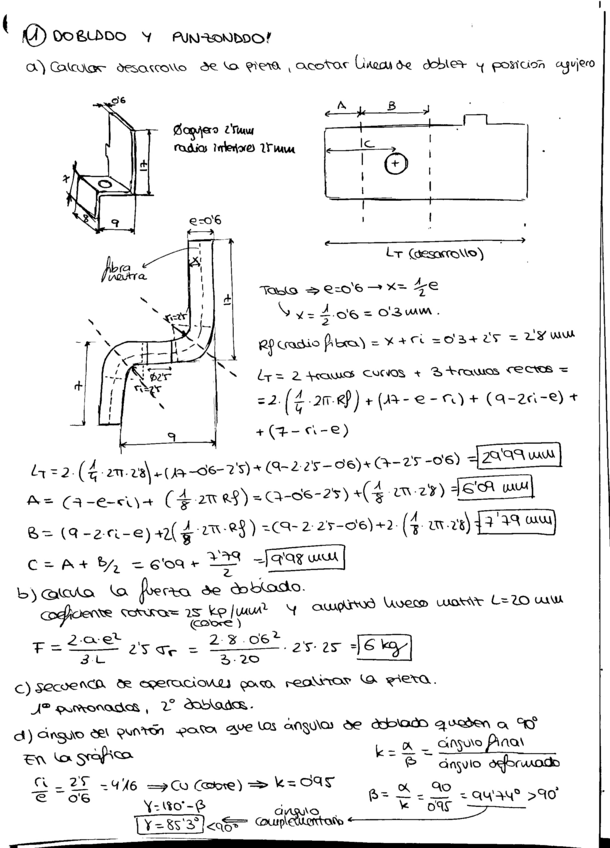 ① DOBLADO Y PUNZONADO!
a) Calcular desarrollo de la pieza, acotar líneas de doblez y posición agujero
0'6
17
7
8
9
Øagujero 2'5mm
radios interiores 2'5mm
A B
C
LT (desarrollo)
e=0'6
fibra neutra
x
17
ri=2'5
Ø2'5
ri=2'5
7
9
Tabla ⇒ e=0'6 → x= 1/2 e
x= 1/2 · 0'6 = 0'3 mm.
Rf (radio fibra) = x + ri = 0'3 + 2'5 = 2'8 mm
LT = 2 tramos curvos + 3 tramos rectos =
= 2·(1/4 · 2π · Rf) + (17 - e - ri) + (9 - 2ri - e) +
+ (7 - ri - e)
LT = 2·(1/4 · 2π · 2'8) + (17 - 0'6 - 2'5) + (9 - 2·2'5 - 0'6) + (7 - 2'5 - 0'6) = 29'99 mm
A = (7 - e - ri) + (1/8 · 2π Rf) = (7 - 0'6 - 2'5) + (1/8 · 2π · 2'8) = 6'09 mm
B = (9 - 2·ri - e) + 2(1/8 · 2π · Rf) = (9 - 2·2'5 - 0'6) + 2·(1/8 · 2π · 2'8) = 7'79 mm
C = A + B/2 = 6'09 + 7'79/2 = 9'98 mm
b) calcula la fuerza de doblado.
coeficiente rotura = 25 kp/mm² y amplitud hueco matriz L=20 mm
(cobre)
F = 2·a·e²/3·L 2'5 σr = 2·8·0'6²/3·20 · 2'5 · 25 = 6 kg
c) secuencia de operaciones para realizar la pieza.
1º punzonados, 2º doblados.
d) ángulo del punzón para que los ángulos de doblado queden a 90º
En la gráfica
k = α/β = ángulo final/ángulo deformado
ri/e = 2'5/0'6 = 4'16 → Cu (cobre) ⇒ k = 0'95
β = α/k = 90/0'95 = 94'74º > 90º
γ = 180º - β
γ = 85'3º < 90º ángulo complementario